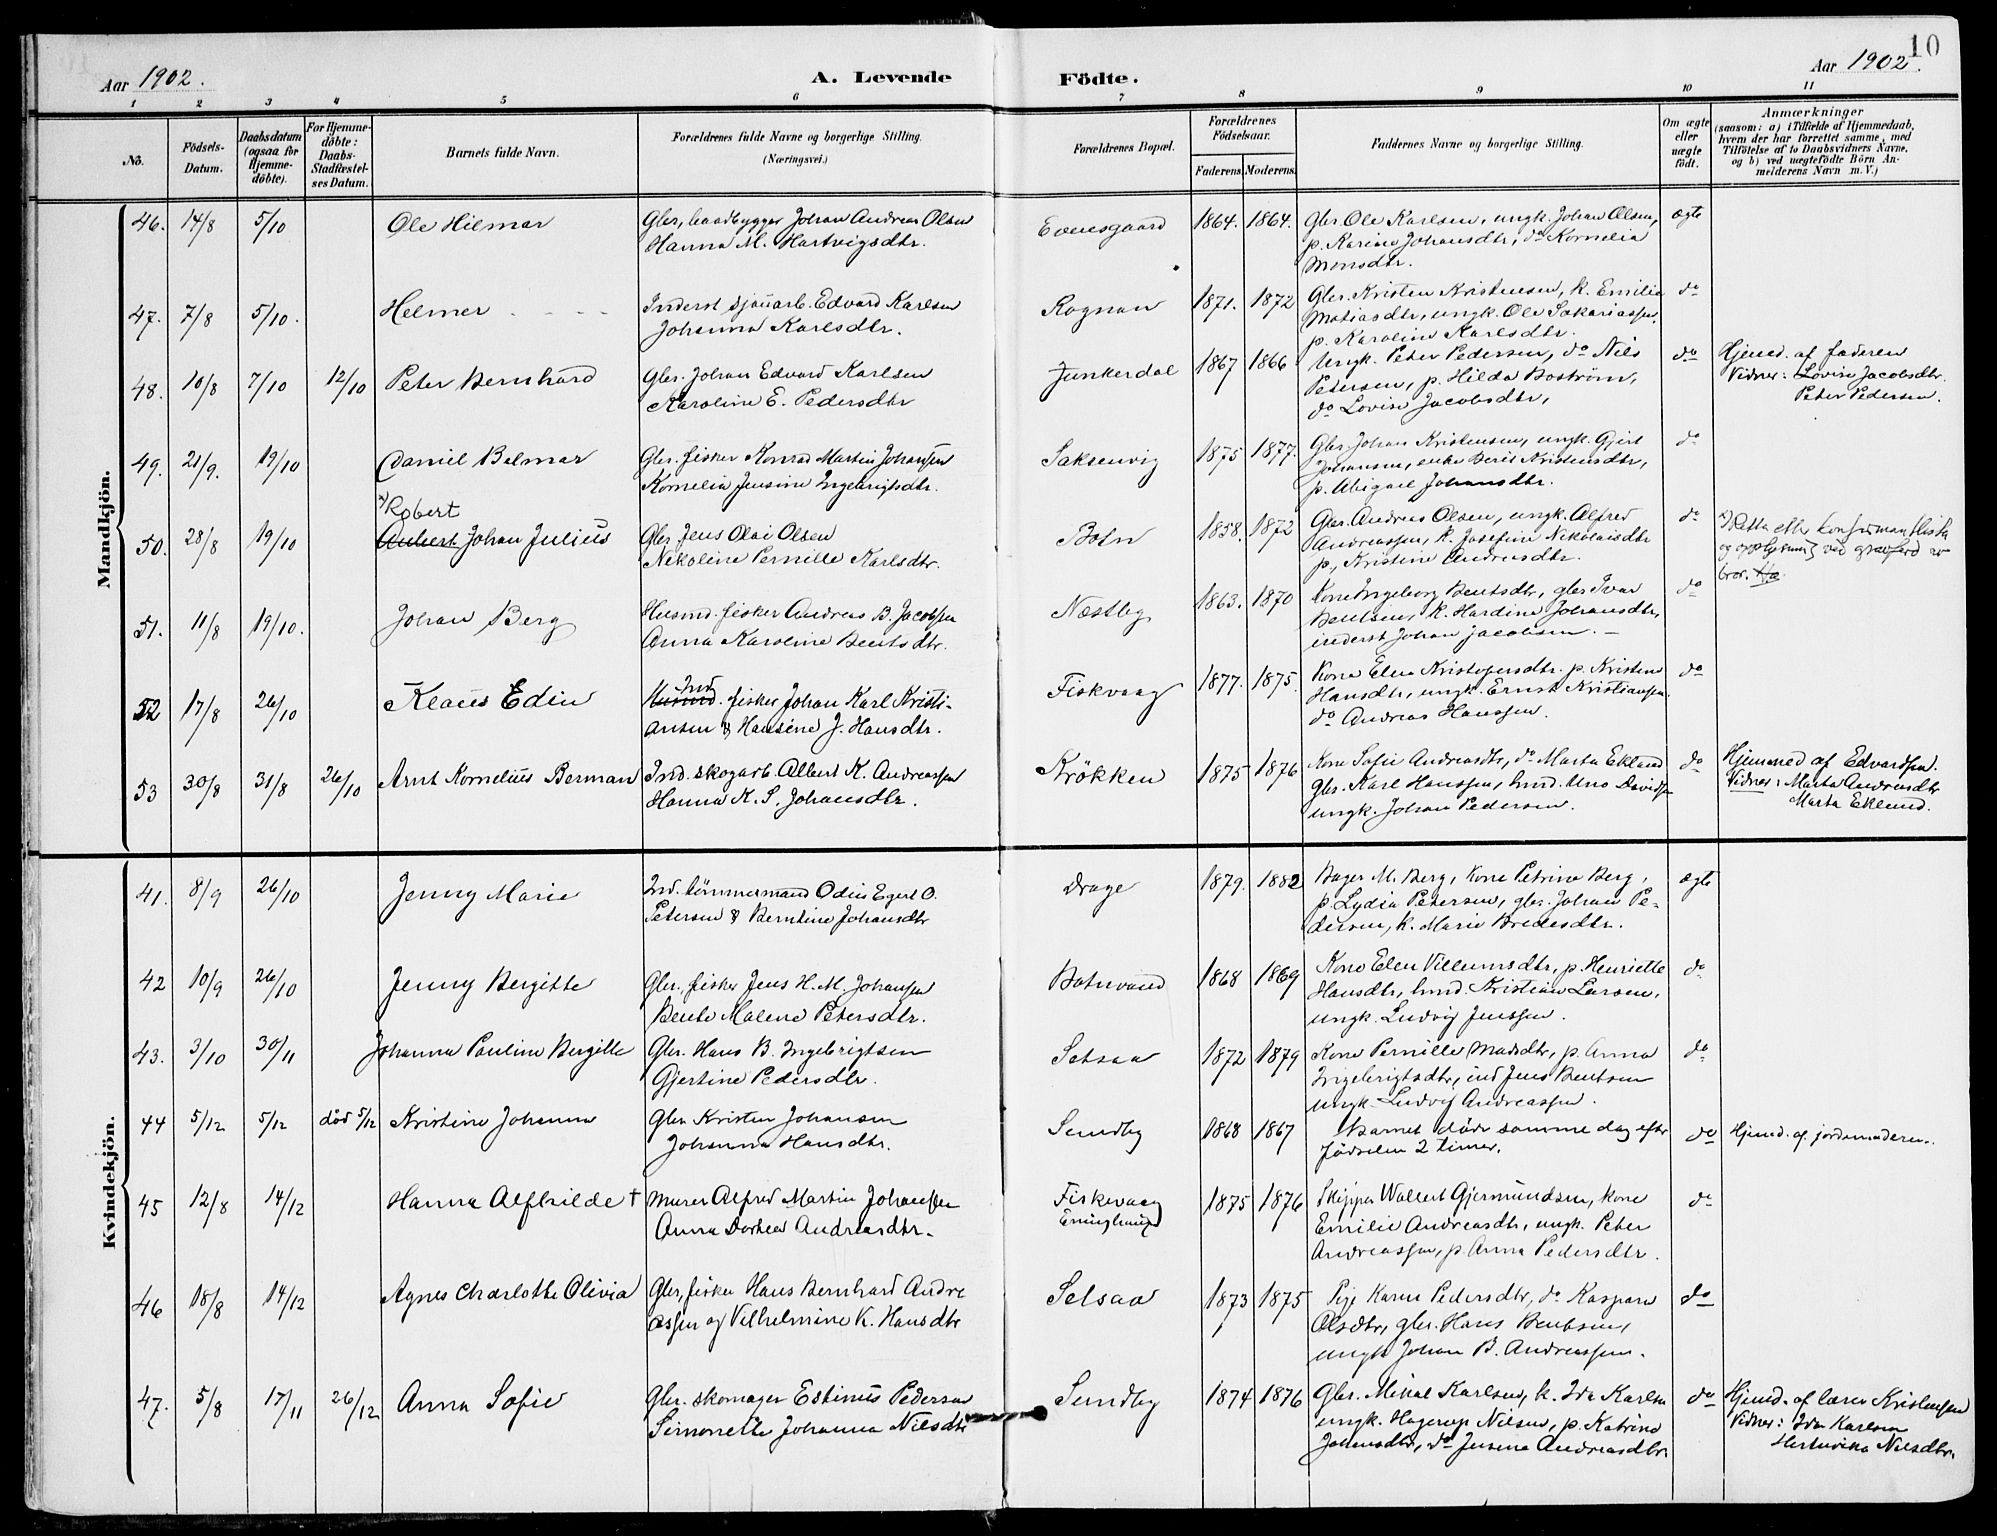 10
Aar 1902. A. Levende Födte. Aar 1902.
1 2 3 4 5 6 7 8 9 10 11
No. Födsels-Datum. Daabsdatum (ogsaa for Hjemmedöbte). For Hjemmedöbte: Daabs-Stadfæstelses Datum. Barnets fulde Navn. Forældrenes fulde Navne og borgerlige Stilling. (Næringsvei.) Forældrenes Bopæl. Forældrenes Födselsaar. Faderens. Moderens. Faddernes Navne og borgerlige Stilling. Om ægte eller uægte födt. Anmærkninger (saasom: a) i Tilfælde af Hjemmedaab, hvem der har forrettet samme, med Tilföielse af to Daabsvidners Navne, og b) ved uægtefödte Börn Anmelderens Navn m. V.)
Mandkjön.
46. 14/8 5/10 Ole Hilmar Gbr, baadbygger Johan Andreas Olsen Evensgaard 1864. 1864. Gbr. Ole Karlsen, ungk. Johan Olsen, ægte
Hanna M. Hartvigsdtr. p. Karine Johansdtr, do Kornelia
Monsdtr.
47. 7/8 5/10. Helmer Inderst sjauarb. Edvard Karlsen Rognan 1871. 1872 Gbr. Kristen Kristensen, k. Emilia do
Johanna Karlsdtr. Matiasdtr, ungk. Ole Sakariassen,
p. Karoline Karlsdtr.
48. 10/8 7/10 12/10 Peter Bernhard Gbr. Johan Edvard Karlsen Junkerdal 1867 1866 Ungk. Peter Pedersen, do Nils do Hjemd. af faderen
Karoline E. Pedersdtr Petersen, p. Hilda Boström, Vidner: Lovise Jacobsdtr.
do Lovise Jacobsdtr, Peter Pedersen.
49. 21/9. 19/10 Daniel Balmar Gbr. fisker Konrad Martin Johansen Saksenvig 1875 1877. Gbr. Johan Kristensen, ungk. Gjert do
Kornelia Jensine Ingebrigtsdtr. Johansen, enke Berit Kristensdtr,
p. Abigael Johansdtr.
x) Robert
50. 28/8 19/10 Aubert Johan Julius Gbr. Jens Olai Olsen Botn 1858. 1872 Gbr. Andreas Olsen, ungk. Alfred do x) Retta etter konfirmantlista
Nekoline Pernille Karlsdtr. Andreassen, k. Josefine Nikolaisdtr og opplysning ved gravferd av
p. Kristine Andreasdtr. bror.
51. 11/8 19/10. Johan Berg Husmd. fisker Andreas B. Jacobsen Næstby 1863. 1870 Kone Ingeborg Bentsdtr, gbr Ivar do
Anna Karoline Bentsdtr. Bentsen, k. Hardine Johansdtr,
inderst Johan Jacobsen. —
52 17/8 26/10 Klaus Edin Husmd. Ind. fisker Johan Karl Kristi- Fiskvaag 1877. 1875. Kone Elen Kristofersdtr. p. Kristine do
ansen & Hansine J. Hansdtr. Hansdtr, ungk. Ernst Kristiansen
do Andreas Hanssen.
53 30/8 31/8 26/10 Arnt Kornelius Berman Ind. skogarb. Albert K. Andreassen Krökken 1875 1876 Kone Sofie Andreasdtr, do Marta Eklund do Hjemmed af Edvardsen.
Hanna K. S. Johansdtr. gbr. Karl Hanssen, hmd. Uno Davidsen Vidner: Marta Andreasdtr
ungk. Johan Pedersen. Marta Eklund.
Kvindekjön.
41. 8/9 26/10 Jenny Marie Ind. tömmermand Odin Egert O. Drage 1879. 1882 Bager M. Berg, kone Petrine Berg, ægte
Petersen & Berntine Johansdtr p. Lydia Petersen, gbr. Johan Pe-
dersen, k. Marie Bredesdtr.
42 10/9 26/10 Jenny Bergitte Gbr. fisker Jens H. M. Johansen Botnvand 1868 1869 Kone Elen Villumsdtr, p. Henriette do
Bente Malene Petersdtr. Hansdtr, hmd. Kristian Larsen,
ungk. Ludvig Jenssen.
43. 3/10 30/11 Johanna Pauline Bergitte Gbr. Hans B. Ingebrigtsen Setsaa 1872 1879 Kone Pernille Madsdtr, p. Anna do
Gjertine Pedersdtr. Ingebrigtsdtr, ind Jens Bentsen
ungk. Ludvig Andreassen.
44 5/12 5/12 död 5/12 Kristine Johanna Gbr Kristen Johansen Sundby 1868 1867 Barnet döde samme dag efter do Hjemd. af jordemoderen.
Johanna Hansdtr. födselen 2 timer.
45 12/8 14/12 Hanna Alfhilde † Murer Alfred Martin Johanssen Fiskevaag 1875 1876 Skipper Wallert Gjermundsen, kone do
Anna Dorthea Andreasdtr. Emilie Andreasdtr, ungk. Peter
Andreassen, p. Anna Pedersdtr.
46 18/8 14/12 Agnes Charlotte Olivia Gbr, fisker Hans Bernhard Andre Setsaa 1873 1875 Pige Karen Pedersdtr, do Kaspara do
assen og Vilhelmine K. Hansdtr Olsdtr, gbr. Hans Bentsen,
ungk Johan B. Andreassen.
47. 5/8 17/11 26/12 Anna Sofie Gbr. skomager Estinus Pedersen Sundby 1874 1876 Gbr. Mikal Karlsen, k. Ida Karlsen do Hjemd. af lærer Kristensen
Simonette Johanna Nilsdtr ungk. Hagerup Nilsen, p. Katrine Vidner: Ida Karlsen
Johansdtr, do Jusina Andreasdtr. Hertvikka Nilsdtr.